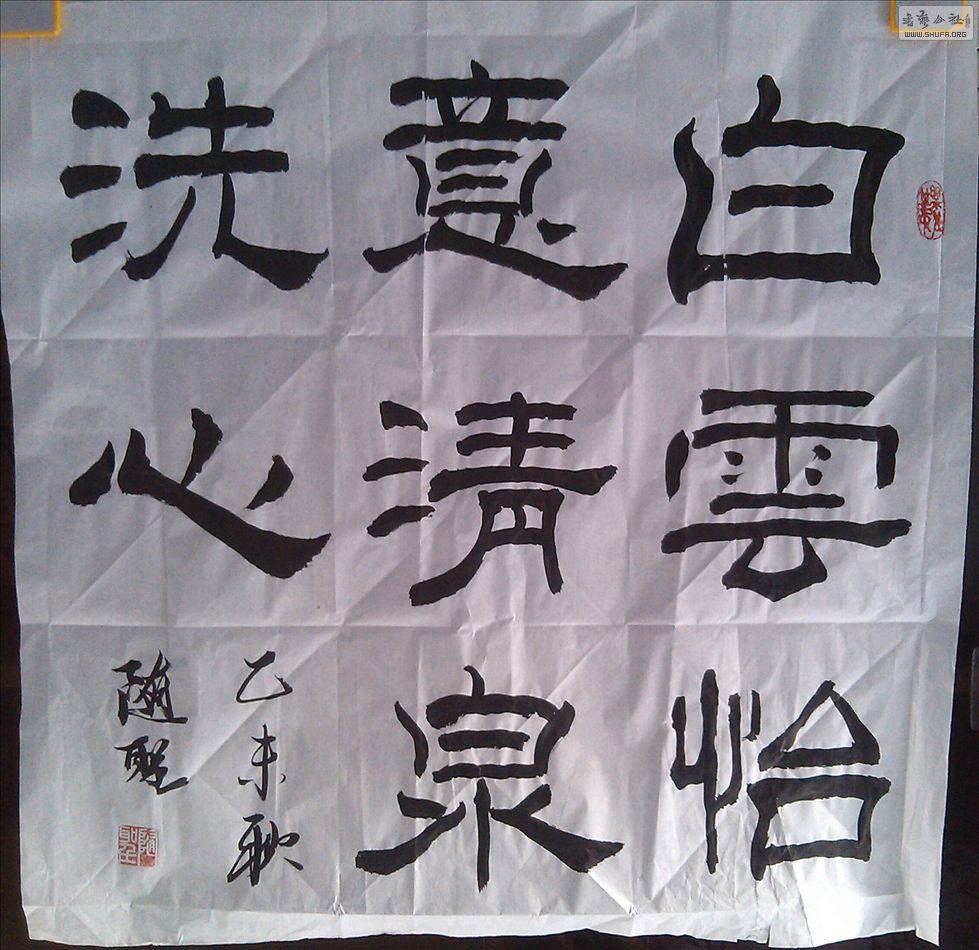 白雲怡
意清泉
洗心
乙未秋
随聖
书艺公社
WWW.SHUFA.ORG